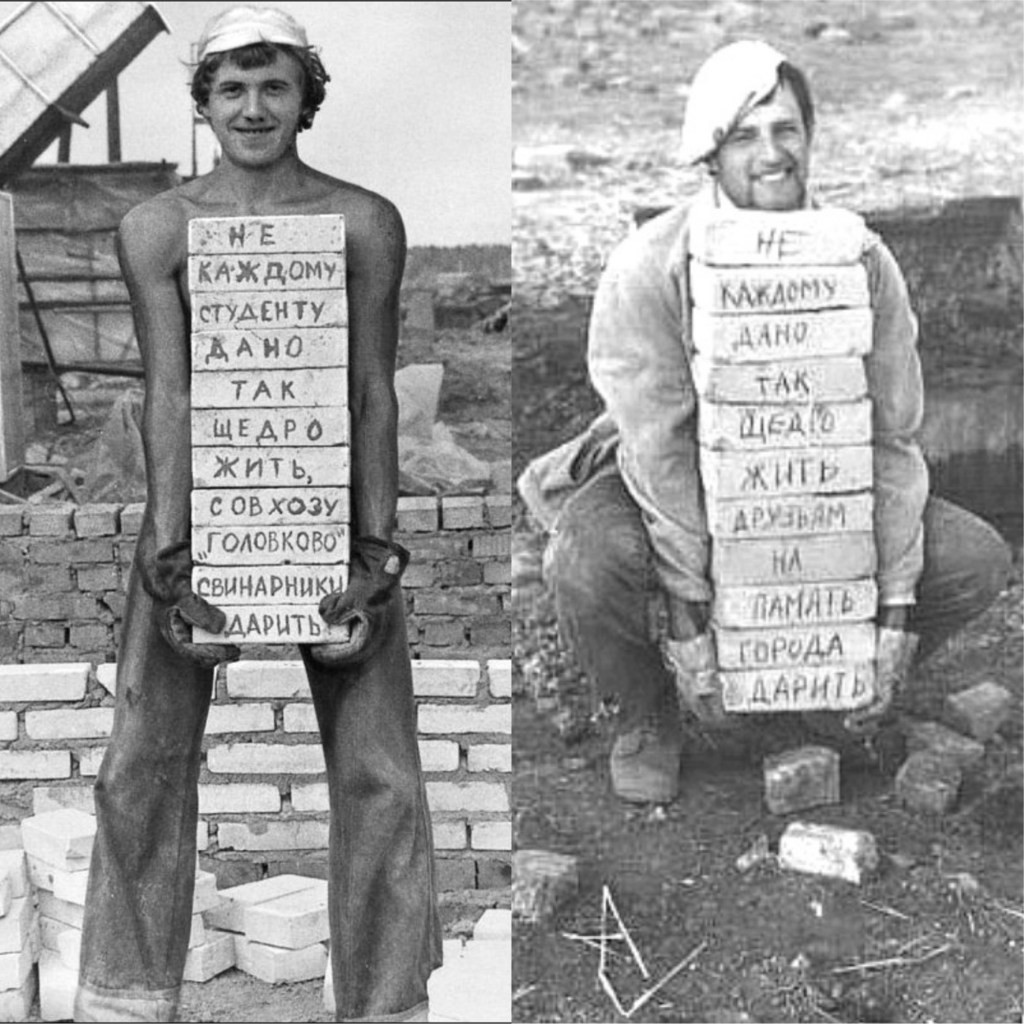 НЕ
КАЖДОМУ
СТУДЕНТУ
ДАНО
ТАК
ЩЕДРО
ЖИТЬ,
СОВХОЗУ
„ГОЛОВКОВО"
СВИНАРНИКИ
ДАРИТЬ
НЕ
КАЖДОМУ
ДАНО
ТАК
ЩЕДРО
ЖИТЬ
ДРУЗЬЯМ
НА
ПАМЯТЬ
ГОРОДА
ДАРИТЬ